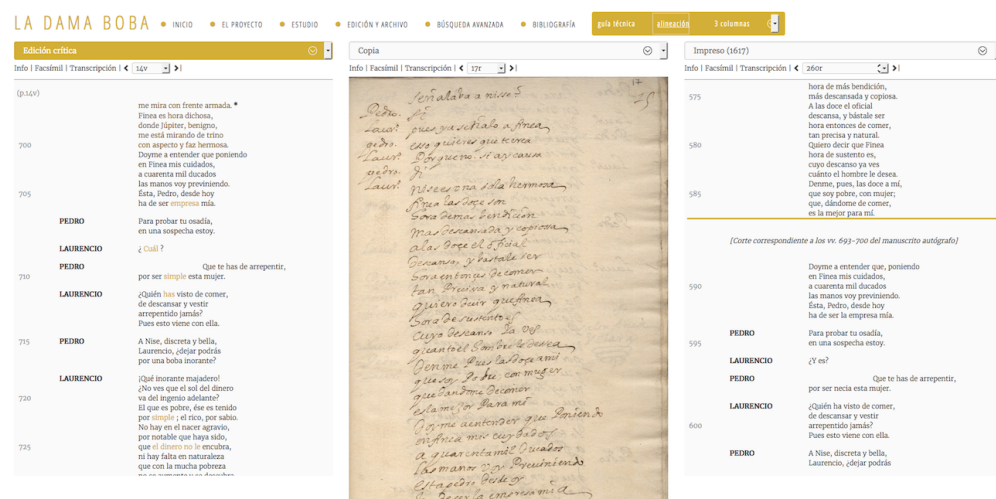 LA DAMA BOBA
INICIO
EL PROYECTO
ESTUDIO
EDICIÓN Y ARCHIVO
BÚSQUEDA AVANZADA
BIBLIOGRAFÍA
guía técnica
alineación
3 columnas
Edición crítica
Info | Facsímil | Transcripción | 14v
(p.14v)
me mira con frente armada. *
Finea es hora dichosa,
donde Júpiter, benigno,
me está mirando de trino
700 con aspecto y faz hermosa.
Doyme a entender que poniendo
en Finea mis cuidados,
a cuarenta mil ducados
las manos voy previniendo.
705 Ésta, Pedro, desde hoy
ha de ser empresa mía.
PEDRO Para probar tu osadía,
en una sospecha estoy.
LAURENCIO ¿ Cuál ?
PEDRO Que te has de arrepentir,
710 por ser simple esta mujer.
LAURENCIO ¿Quién has visto de comer,
de descansar y vestir
arrepentido jamás?
Pues esto viene con ella.
715 PEDRO A Nise, discreta y bella,
Laurencio, ¿dejar podrás
por una boba inorante?
LAURENCIO ¡Qué inorante majadero!
¿No ves que el sol del dinero
720 va del ingenio adelante?
El que es pobre, ése es tenido
por simple ; el rico, por sabio.
No hay en el nacer agravio,
por notable que haya sido,
725 que el dinero no le encubra,
ni hay falta en naturaleza
que con la mucha pobreza
Copia
Info | Facsímil | Transcripción | 17r
17
señalaba a nise
Pedro. Si
Laur. pues ya señalo a finea
pedro. esso quieres que te crea
Laur. Por que no. si ay causa
pedro. di
Laur. nise es una sola hermosa
finea las doçe son
mas descansada y copiosa
a las doçe el oficial
descansa, y bastale ser
tan Precisa y natural
quiero decir que finea
cuyo descanso ya ves
Denme Pues las doçe a mi
que soy Pobre con muger
que dandome de comer
es la mejor Para mi
Doyme a entender que Poniendo
en finea mis cuydados
a quarenta mil Ducados
las manos voy Previniendo
esta pedro desde oy
Impreso (1617)
Info | Facsímil | Transcripción | 260r
hora de más bendición,
575 más descansada y copiosa.
A las doce el oficial
descansa, y bástale ser
hora entonces de comer,
tan precisa y natural.
580 Quiero decir que Finea
hora de sustento es,
cuyo descanso ya ves
cuánto el hombre le desea.
Denme, pues, las doce a mí,
585 que soy pobre, con mujer;
que, dándome de comer,
es la mejor para mí.
[Corte correspondiente a los vv. 693-700 del manuscrito autógrafo]
Doyme a entender que, poniendo
en Finea mis cuidados,
590 a cuarenta mil ducados
las manos voy previniendo.
Ésta, Pedro, desde hoy
ha de ser la empresa mía.
PEDRO Para probar tu osadía,
595 en una sospecha estoy.
LAURENCIO ¿Y es?
PEDRO Que te has de arrepentir,
por ser necia esta mujer.
LAURENCIO ¿Quién ha visto de comer,
de descansar y vestir
600 arrepentido jamás?
Pues esto viene con ella.
PEDRO A Nise, discreta y bella,
Laurencio, ¿dejar podrás